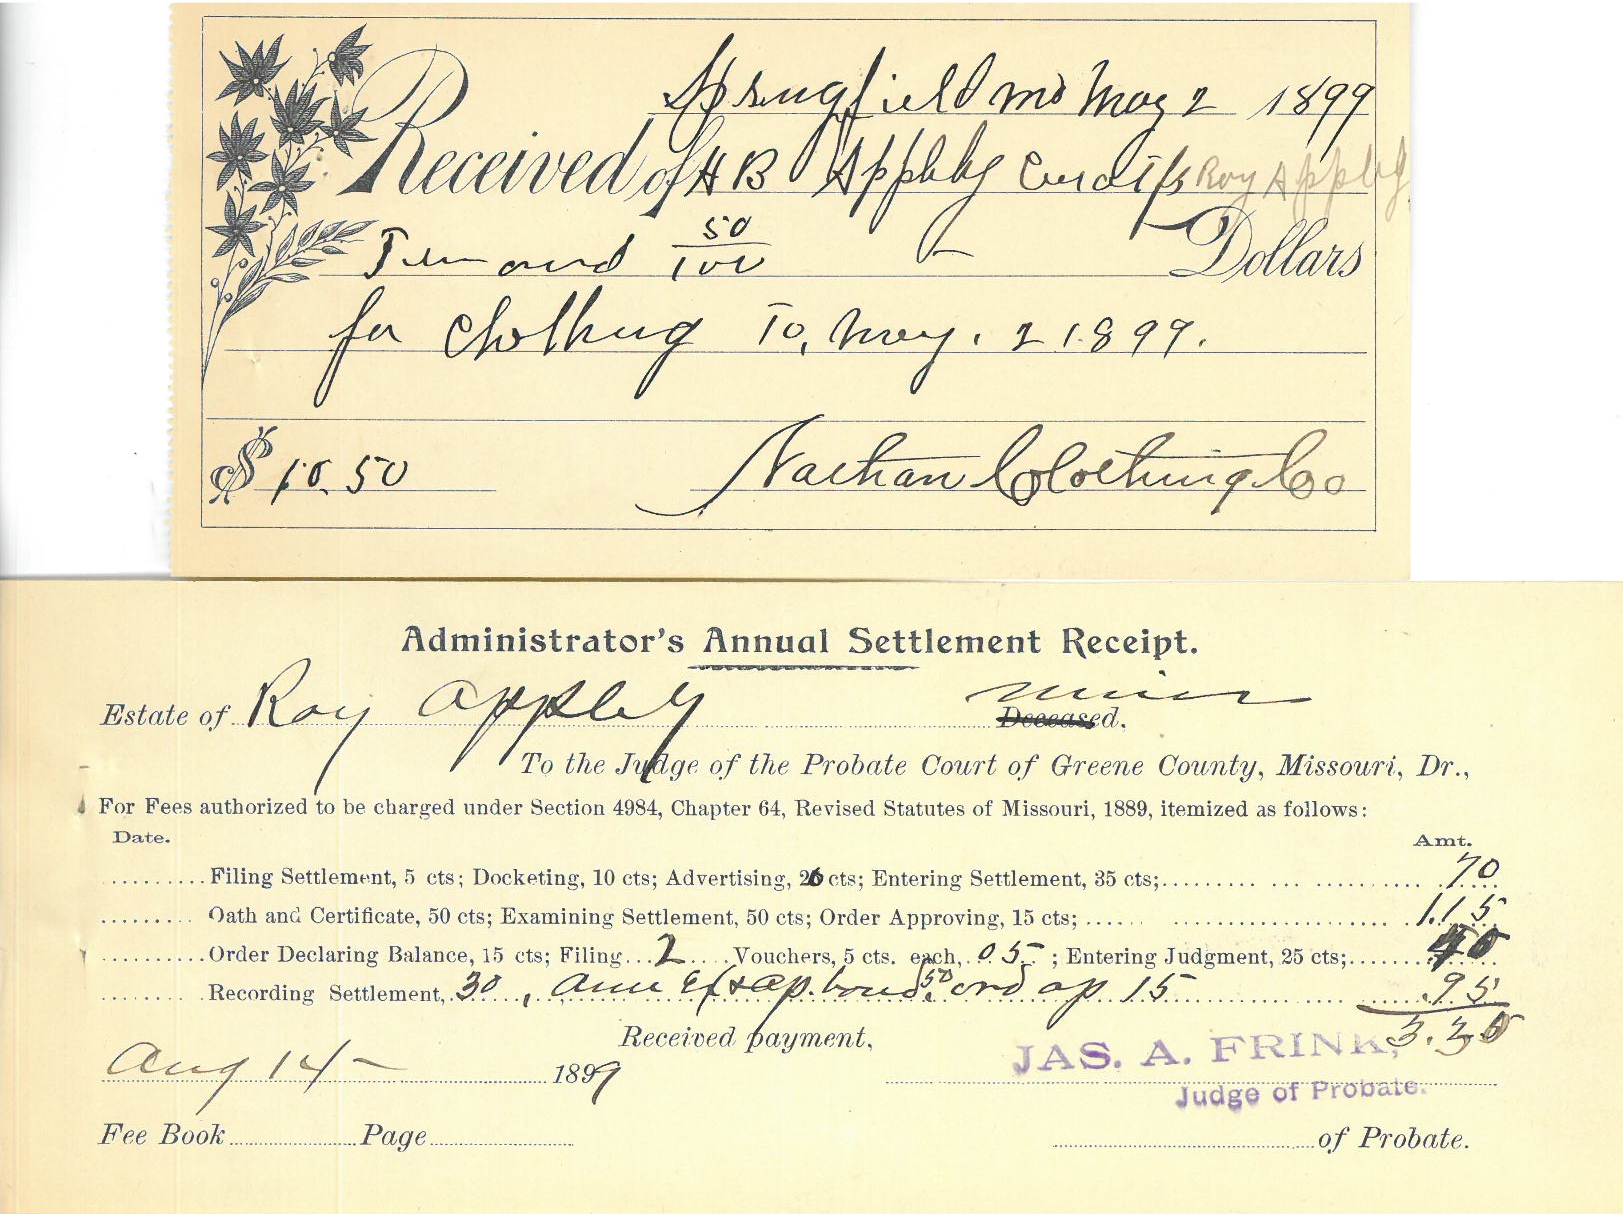 Springfield Mo May 2 1899
Received of H B Appleby Curator Roy Appleby
Ten and 50/100 Dollars
for Clothing To, May. 2 1899.
$ 10.50 Nathan Clothing Co
Administrator's Annual Settlement Receipt.
Estate of Roy Appleby minor Deceased.
To the Judge of the Probate Court of Greene County, Missouri, Dr.,
For Fees authorized to be charged under Section 4984, Chapter 64, Revised Statutes of Missouri, 1889, itemized as follows:
Date. Amt.
Filing Settlement, 5 cts; Docketing, 10 cts; Advertising, 20 cts; Entering Settlement, 35 cts; 70
Oath and Certificate, 50 cts; Examining Settlement, 50 cts; Order Approving, 15 cts; 1.15
Order Declaring Balance, 15 cts; Filing 2 Vouchers, 5 cts. each, 05 ; Entering Judgment, 25 cts;
Recording Settlement, 30, ap. bond 50 ord ap 15 .95
Received payment, 3.20
Aug 14 - 1899
JAS. A. FRINK,
Judge of Probate.
Fee Book Page of Probate.